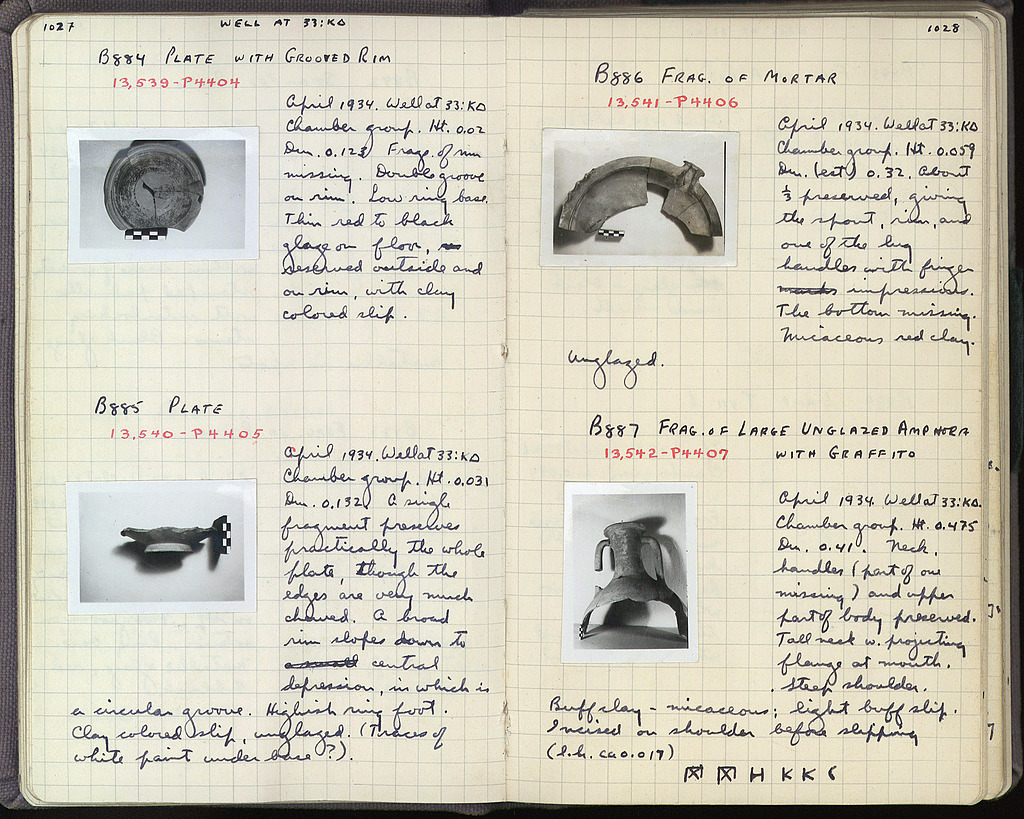 1027
WELL AT 33:KΔ
B884 PLATE WITH GROOVED RIM
13,539-P4404
April 1934. Well at 33:KΔ
Chamber group. Ht. 0.02
Dm. 0.123 Frags. of rim
missing. Double groove
on rim. Low ring base.
Thin red to black
glaze on floor,
reserved outside and
on rim, with clay
colored slip.
B885 PLATE
13,540-P4405
April 1934. Well at 33:KΔ
Chamber group. Ht. 0.031
Dm. 0.132. A single
fragment preserves
practically the whole
plate, though the
edges are very much
chewed. A broad
rim slopes down to
a small central
depression, in which is
a circular groove. Highish ring foot.
Clay colored slip, unglazed. (Traces of
white paint under base?).
1028
B886 FRAG. OF MORTAR
13,541-P4406
April 1934. Well at 33:KΔ
Chamber group. Ht. 0.059
Dm. (est.) 0.32. About
⅓ preserved, giving
the spout, rim, and
one of the lug
handles with finger
marks impressions.
The bottom missing.
Micaceous red clay.
Unglazed.
B887 FRAG. OF LARGE UNGLAZED AMPHORA
13,542-P4407 WITH GRAFFITO
April 1934. Well at 33:KΔ.
Chamber group. Ht. 0.475
Dm. 0.41. Neck,
handles (part of one
missing) and upper
part of body preserved.
Tall neck w. projecting
flange at mouth.
Steep shoulder.
Buff clay - micaceous; light buff slip.
Incised on shoulder before slipping
(l.h. ca 0.017)